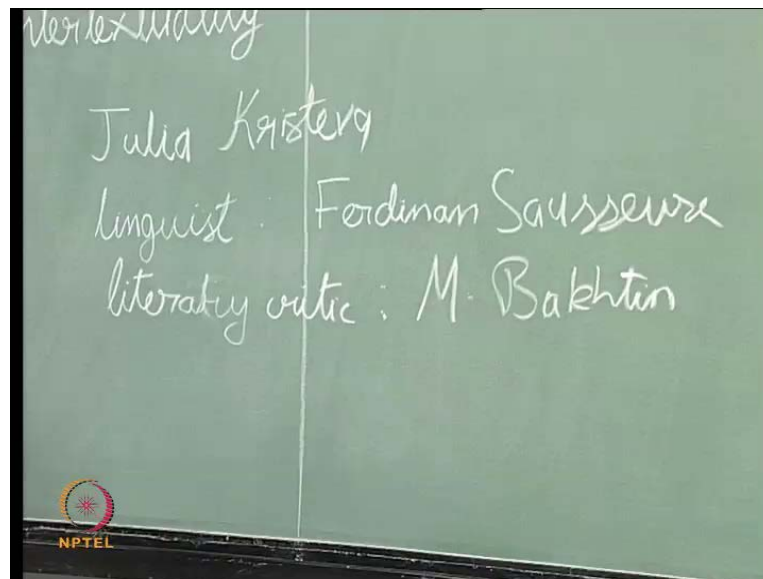 ntertextuality
Julia Kristeva
linguist : Ferdinan Sausseure
literary critic : M. Bakhtin
NPTEL